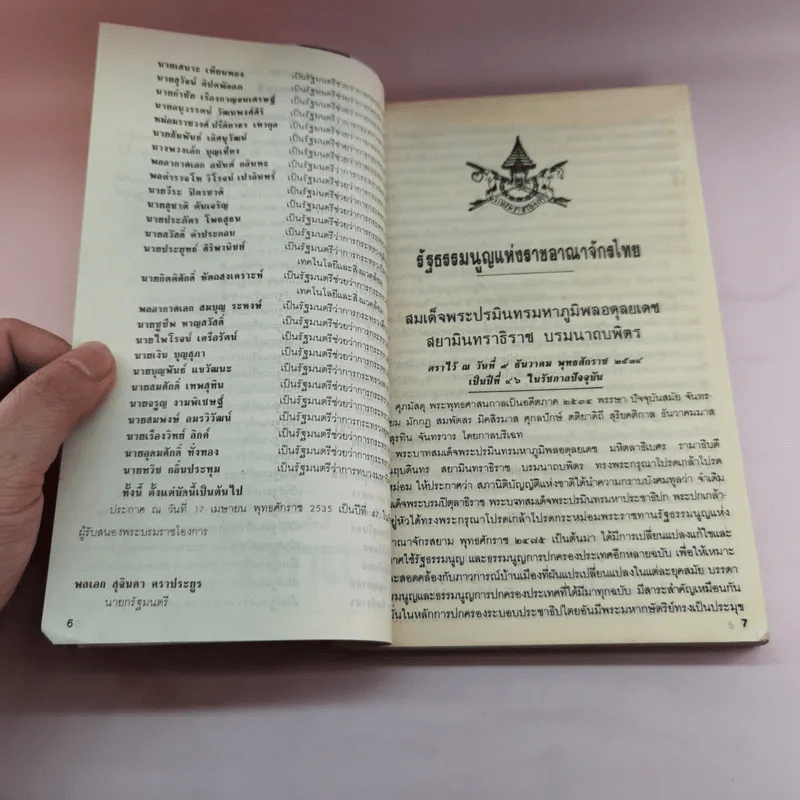 นายเสนาะ เทียนทอง เป็นรัฐมนตรีช่วยว่าการกระทรวง
นายสุวัจน์ ลิปตพัลลภ เป็นรัฐมนตรีช่วยว่าการกระทรวง
นายอำทัย เรืองกาญจนเศรษฐ์ เป็นรัฐมนตรีช่วยว่าการกระทรวง
นายอนุวรรตน์ วัฒนพงศ์ศิริ เป็นรัฐมนตรีช่วยว่าการกระทรวง
หม่อมราชวงศ์ ปรีดิยาธร เทวกุล เป็นรัฐมนตรีช่วยว่าการกระทรวง
นายสัมพันธ์ เลิศนุวัฒน์ เป็นรัฐมนตรีช่วยว่าการกระทรวง
นางพวงเล็ก บุญเชียง เป็นรัฐมนตรีช่วยว่าการกระทรวง
พลอากาศเอก อนันต์ กลินทะ เป็นรัฐมนตรีช่วยว่าการกระทรวง
พลตำรวจโท วิโรจน์ เปาอินทร์ เป็นรัฐมนตรีช่วยว่าการกระทรวง
นายวีระ ปิตรชาติ เป็นรัฐมนตรีช่วยว่าการกระทรวง
นายสุชาติ ตันเจริญ เป็นรัฐมนตรีช่วยว่าการกระทรวง
นายประภัตร โพธสุธน เป็นรัฐมนตรีช่วยว่าการกระทรวง
นายสวัสดิ์ คำประกอบ เป็นรัฐมนตรีช่วยว่าการกระทรวง
นายประยุทธ์ ศิริพานิชย์ เป็นรัฐมนตรีช่วยว่าการกระทรวง
เทคโนโลยีและสิ่งแวดล้อม
นายกิตติศักดิ์ หัตถสงเคราะห์ เป็นรัฐมนตรีช่วยว่าการกระทรวง
เทคโนโลยีและสิ่งแวดล้อม
พลอากาศเอก สมบุญ ระหงษ์ เป็นรัฐมนตรีว่าการกระทรวง
นายชูชีพ หาญสวัสดิ์ เป็นรัฐมนตรีช่วยว่าการกระทรวง
นายไพโรจน์ เครือรัตน์ เป็นรัฐมนตรีช่วยว่าการกระทรวง
นายเงิน บุญสุภา เป็นรัฐมนตรีช่วยว่าการกระทรวง
นายบุญพันธ์ แขวัฒนะ เป็นรัฐมนตรีว่าการกระทรวง
นายสมศักดิ์ เทพสุทิน เป็นรัฐมนตรีช่วยว่าการกระทรวง
นายจรูญ งามพิเชษฐ์ เป็นรัฐมนตรีช่วยว่าการกระทรวง
นายสมพงษ์ อมรวิวัฒน์ เป็นรัฐมนตรีว่าการกระทรวง
นายเรืองวิทย์ ลิกค์ เป็นรัฐมนตรีช่วยว่าการกระทรวง
นายอุดมศักดิ์ ทั่งทอง เป็นรัฐมนตรีช่วยว่าการกระทรวง
นายทวิช กลิ่นประทุม เป็นรัฐมนตรีว่าการทบวง
ทั้งนี้ ตั้งแต่บัดนี้เป็นต้นไป
ประกาศ ณ วันที่ 17 เมษายน พุทธศักราช 2535 เป็นปีที่ 47
ผู้รับสนองพระบรมราชโองการ
พลเอก สุจินดา คราประยูร
นายกรัฐมนตรี
6
รัฐธรรมนูญแห่งราชอาณาจักรไทย
สมเด็จพระปรมินทรมหาภูมิพลอดุลยเดช
สยามินทราธิราช บรมนาถบพิตร
ตราไว้ ณ วันที่ ๙ ธันวาคม พุทธศักราช ๒๕๓๔
เป็นปีที่ ๔๖ ในรัชกาลปัจจุบัน
ศุภมัสดุ พระพุทธศาสนกาลเป็นอดีตภาค ๒๕๓๔ พรรษา ปัจจุบันสมัย จันทร-
ยม มักกฎ สมพัตสร มิคสิรมาส ศุกลปักษ์ ตติยาดิถี สุริยคติกาล ธันวาคมมาส
สุรทิน จันทวาร โดยกาลบริเฉท
พระบาทสมเด็จพระปรมินทรมหาภูมิพลอดุลยเดช มหิตลาธิเบศร รามาธิบดี
นฤบดินทร สยามินทราธิราช บรมนาถบพิตร ทรงพระกรุณาโปรดเกล้าโปรด
หม่อม ให้ประกาศว่า สภานิติบัญญัติแห่งชาติได้นำความกราบบังคมทูลว่า จำเดิม
เด็จพระบรมปิตุลาธิราช พระบาทสมเด็จพระปรมินทรมหาประชาธิปก พระปกเกล้า-
อยู่หัวได้ทรงพระกรุณาโปรดเกล้าโปรดกระหม่อมพระราชทานรัฐธรรมนูญแห่ง
อาณาจักรสยาม พุทธศักราช ๒๔๗๕ เป็นต้นมา ได้มีการเปลี่ยนแปลงแก้ไขและ
กาศใช้รัฐธรรมนูญ และธรรมนูญการปกครองประเทศอีกหลายฉบับ เพื่อให้เหมาะ
และสอดคล้องกับภาวการณ์บ้านเมืองที่ผันแปรเปลี่ยนแปลงในแต่ละยุคสมัย บรรดา
มนูญและธรรมนูญการปกครองประเทศที่ได้มีมาทุกฉบับ มีสาระสำคัญเหมือนกัน
ั่นในหลักการปกครองระบอบประชาธิปไตยอันมีพระมหากษัตริย์ทรงเป็นประมุข
7